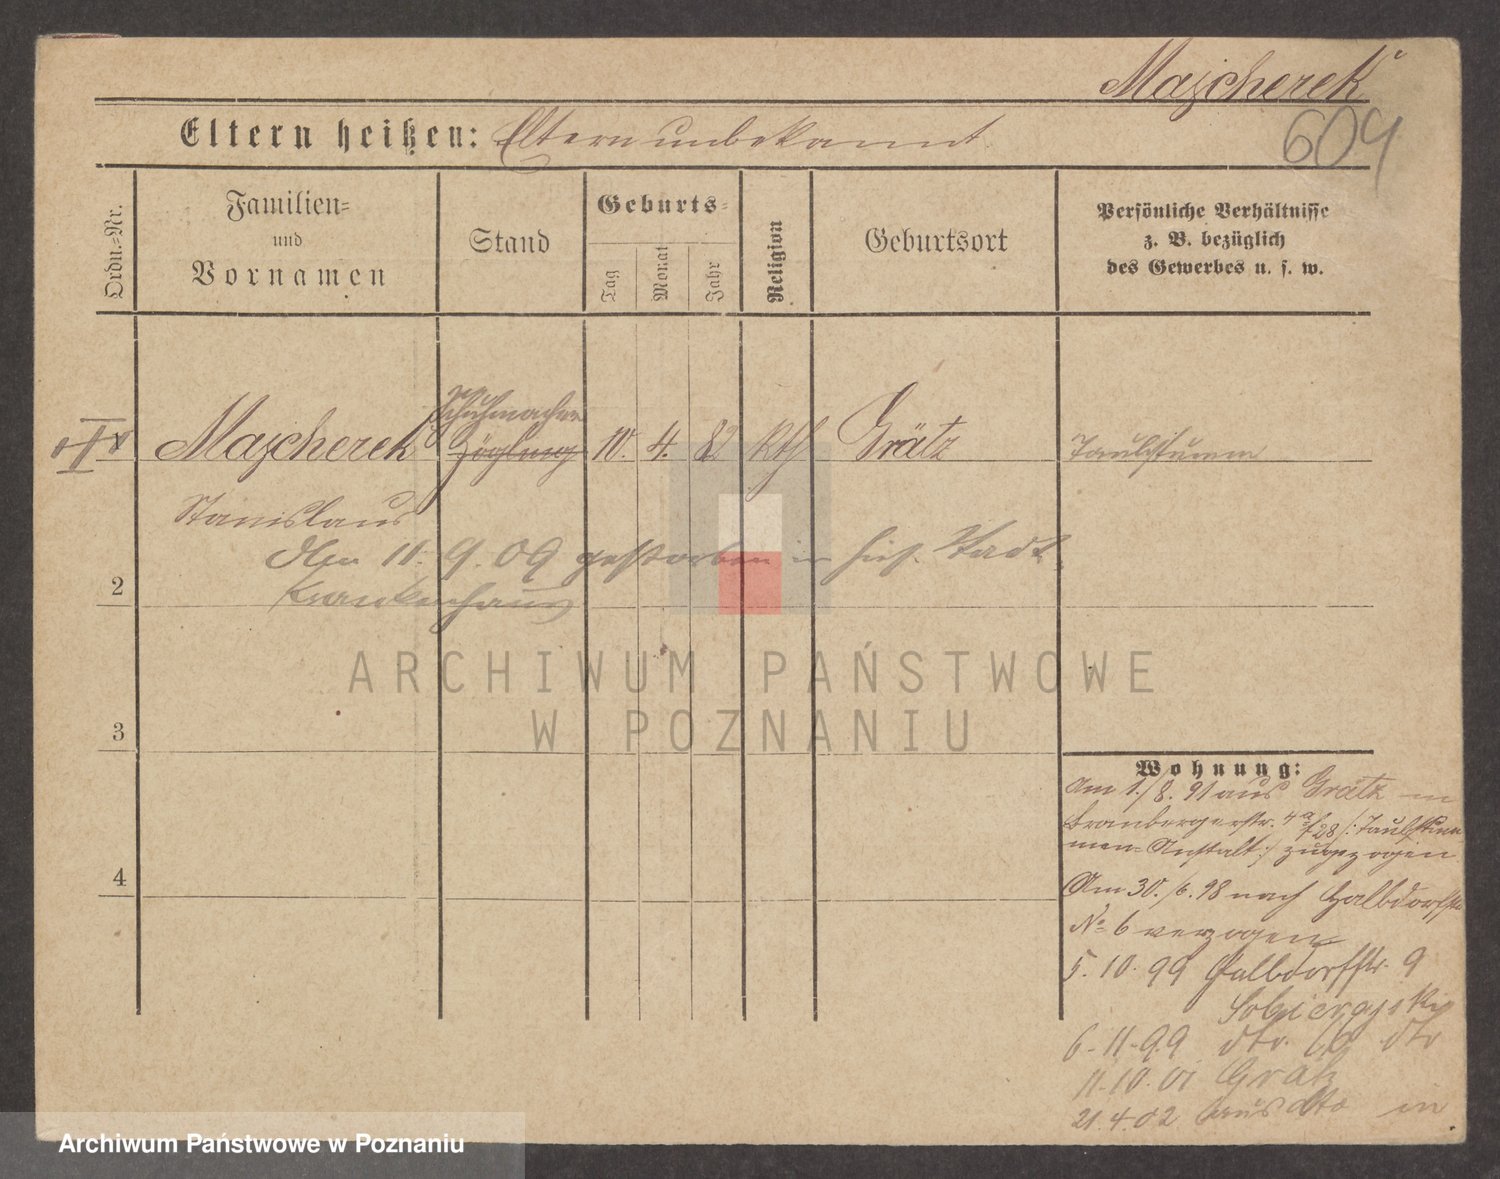 Majcherek
Eltern heißen: Eltern unbekannt
604
Ordn.-Nr.
Familien-
und
Vornamen
Stand
Geburts-
Tag
Monat
Jahr
Religion
Geburtsort
Persönliche Verhältnisse
z. B. bezüglich
des Gewerbes u. s. w.
Schuhmacher
Majcherek Zögling 10. 4. 82 Kth Grätz Taubstumm
Stanislaus
Den 11. 9. 09 gestorben in hies. Stadt
Krankenhaus
2
3
4
Wohnung:
Am 1./8. 91 aus Grätz in
Brombergerstr. 4a /: Taubstum
men-Anstalt :/ zugezogen
Am 30./6. 98 nach Halbdorfstr
No 6 verzogen
5. 10. 99 Halbdorfstr. 9
6-11-99 dto.
11.10.01 Grätz
21.4.02 aus dto in
ARCHIWUM PAŃSTWOWE
W POZNANIU
Archiwum Państwowe w Poznaniu